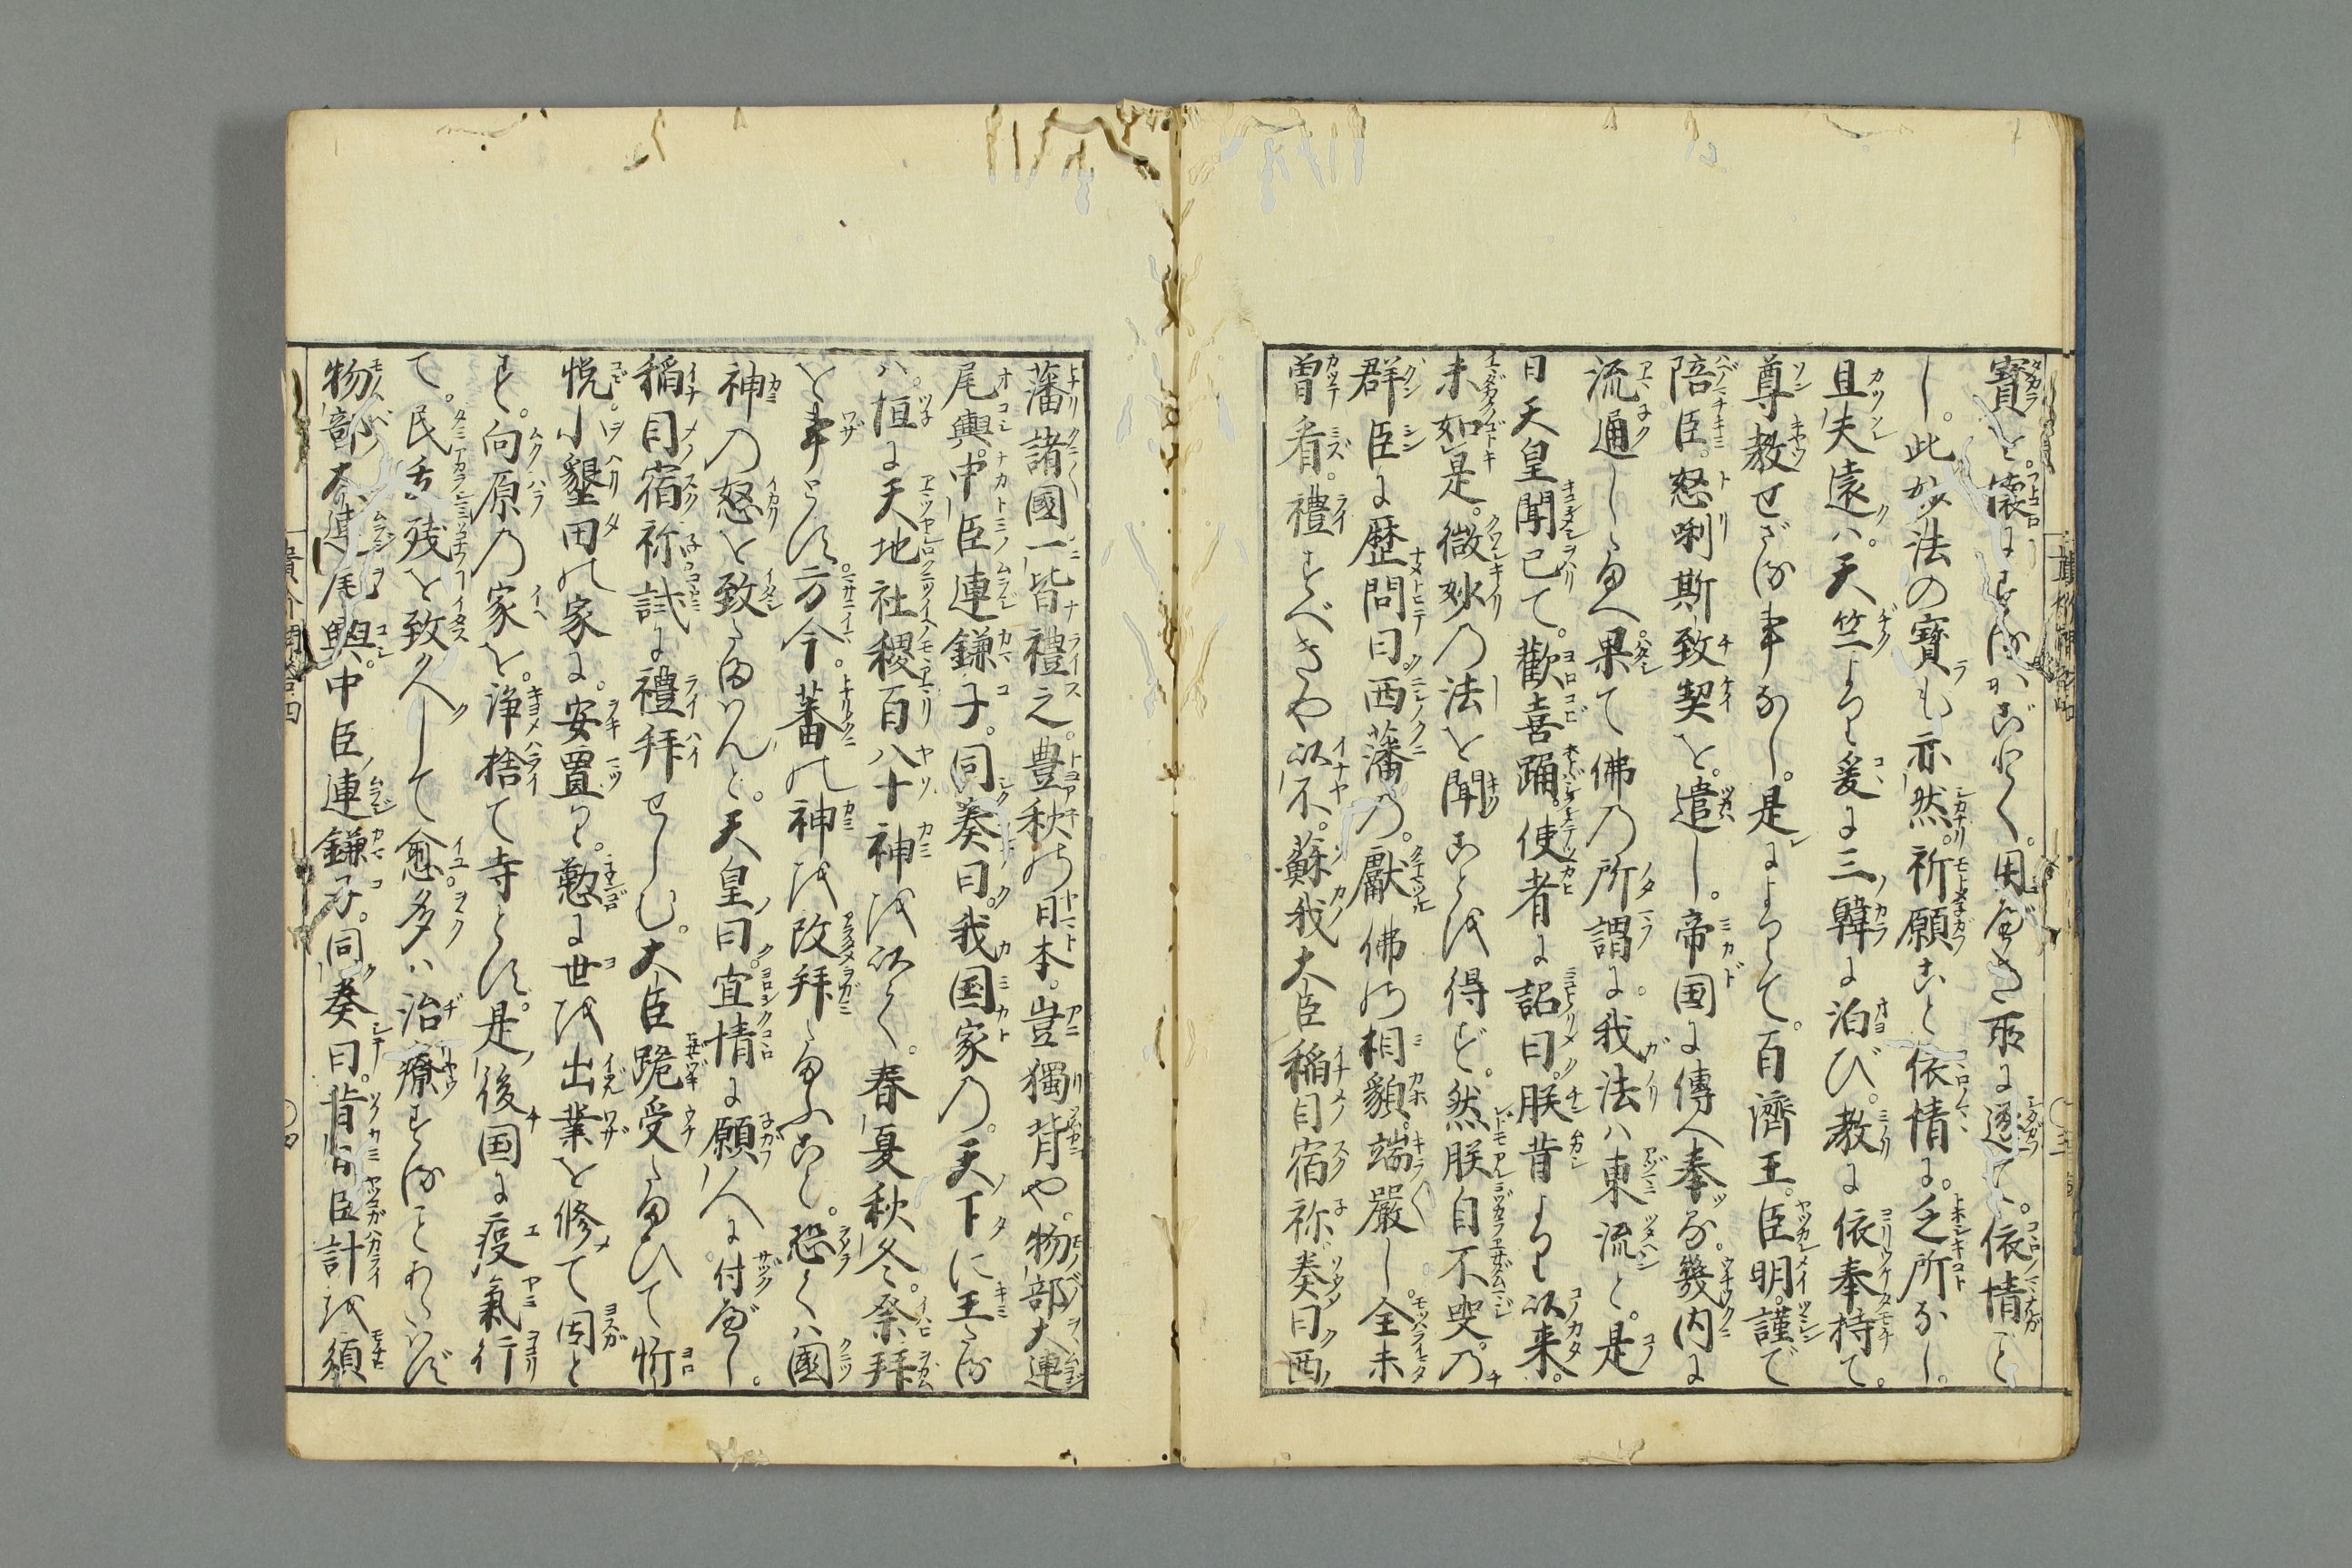 寶を。懐にするがごとく。用べき所に逐て。依情ど
し。此妙法の寶も亦然。祈願こと依情に。乏所なし。
且夫遠ハ。天竺より爰に三韓に泊び。教に依奉持て。
尊教せざる事なし。是によりて。百濟王。臣明。謹で
陪臣。怒唎斯致契を。遣し。帝国に傳へ奉る。幾内に
流通したまへ。果て佛乃所謂に。我法ハ東流と。是
日天皇聞已て。歡喜踊。使者に詔曰。朕昔より以来。
未如是。微妙乃法を聞ことを得ず。然朕自不㕝。乃
群臣に歴問曰。西藩乃。獻佛の相貌。端嚴し。全未
曽看。禮すべきや以不。蘇我大臣稲目宿祢奏曰西
藩諸國一皆禮之。豊秋の日本。豈獨背や。物部大連
尾輿。中臣連鎌子。同奏曰。我国家乃。天下に王たる
ハ。恒に天地社稷百八十神を以く。春夏秋冬。祭拜
を事とす。方今。蕃の神を改拜たまふこと。恐くハ國
神乃怒を致たまハんと。天皇曰。宜情に願人に付べし。
稲目宿祢試に禮拜せしむ。大臣跪受たまひて忻
悦。小墾田の家に。安置し。懃に世を出業を修て因と
す。向原乃家を。浄捨て寺とす。是後国に疫氣行
て。民夭残を致久して愈多ハ治療することあたハず
物部大連尾輿。中臣連鎌子。同奏曰。昔旬臣計を須